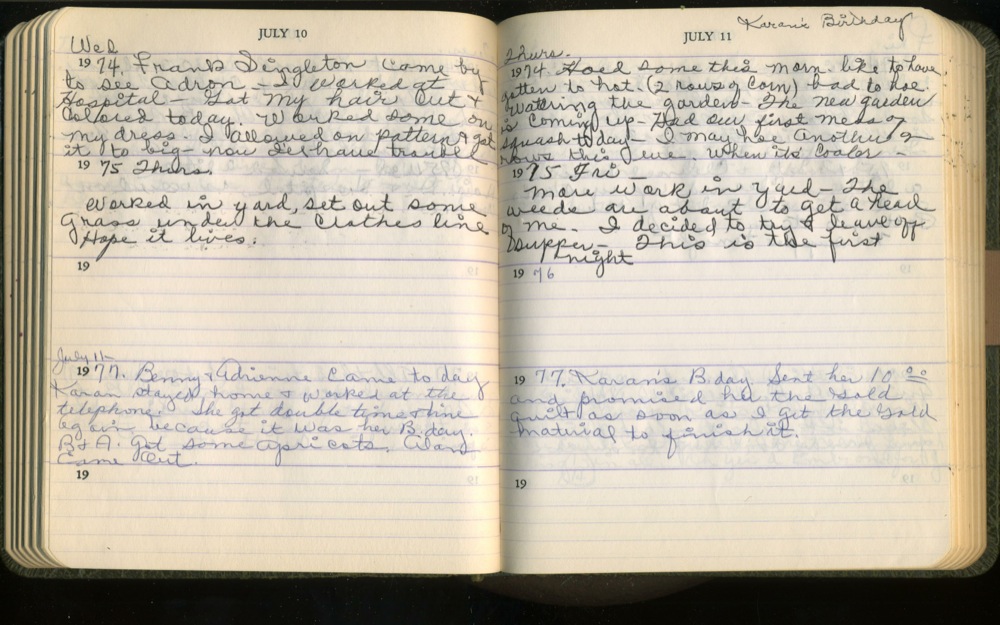 JULY 10
Wed
1974. Frank Singleton came by
to see Adron - I worked at
Hospital - Got my hair Cut &
Colored today. Worked some on
my dress. I allowed on pattern & got
it to big - now I'll have trouble
1975 Thurs.
Worked in yard, set out some
Grass under the Clothes line
Hope it lives.
19
July 11-
1977. Benny & Adrienne Came to day
Karan stayed home & worked at the
telephone. She got double time & nine
again because it was her B.day.
B & A. got some apricots. Alan
Came Out.
19
Karan's Birthday
JULY 11
Thurs.
1974 Hoed some this morn. like to have
gotten to hot. (2 rows of Corn) bad to hoe.
Watering the garden - The new garden
is coming up - Had our first mess of
squash today - I may hoe another 2
rows this eve. when its Cooler -
1975 Fri
More work in yard - The
weeds are about to get a head
of me. I decided to try & leave off
Supper - This is the first
night
1976
1977. Karan's B.day Sent her 10.00
and promised her the Gold
quilt as soon as I get the Gold
material to finish it.
19